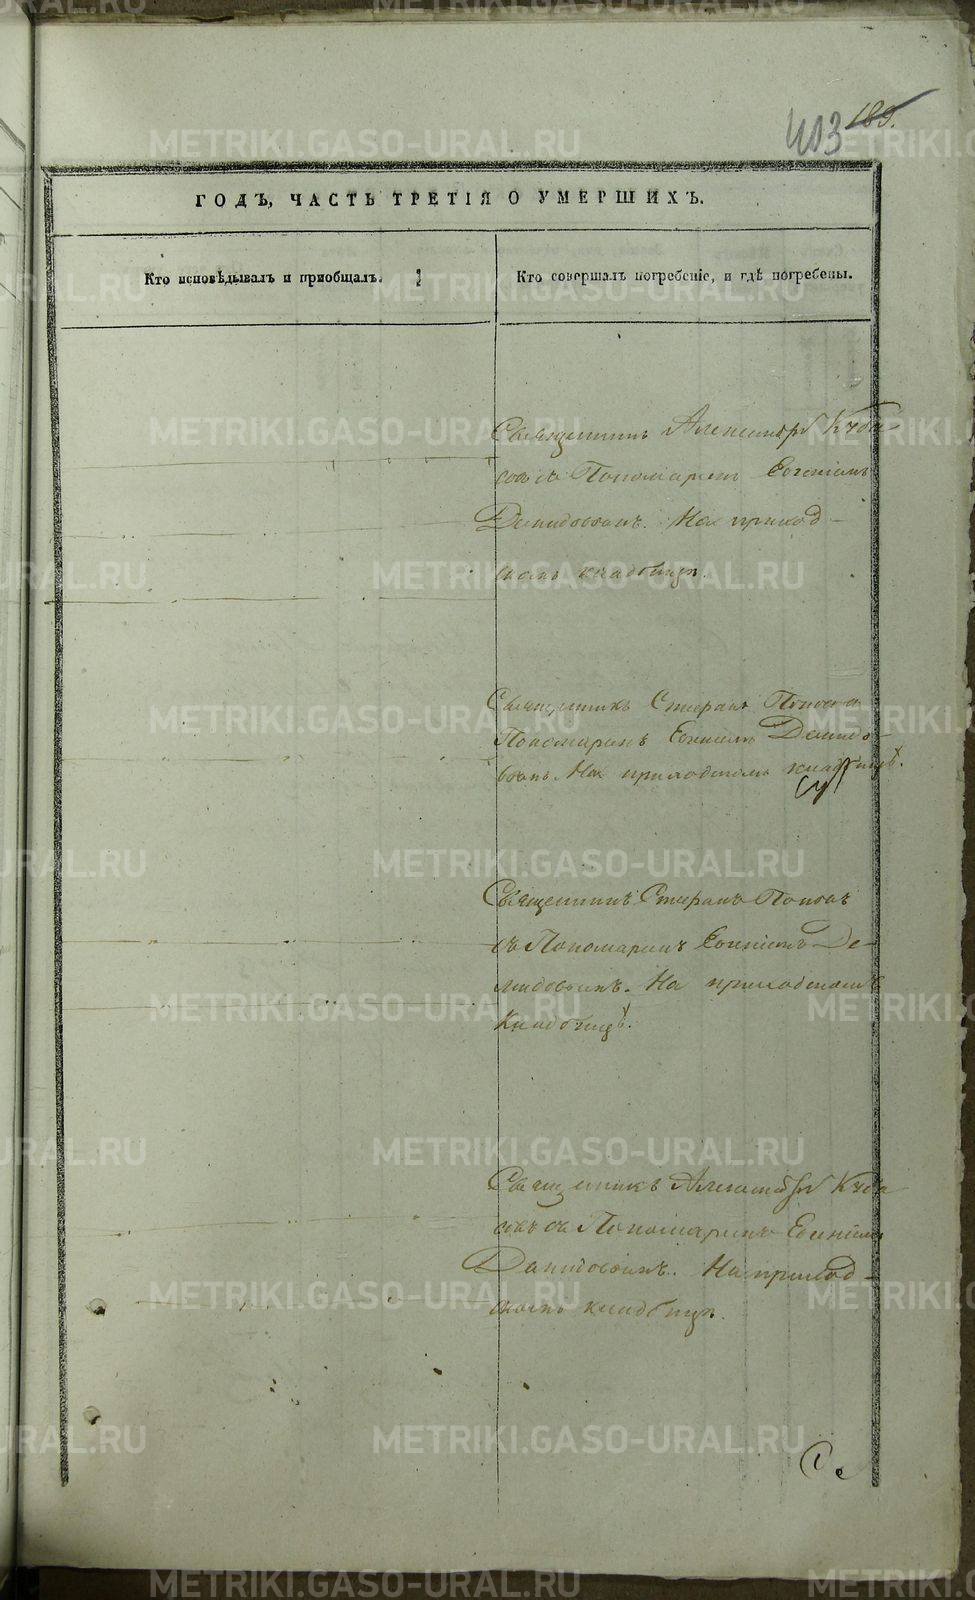 189.
403
ГОДЪ, ЧАСТЬ ТРЕТІЯ О УМЕРШИХЪ.
Кто исповѣдывалъ и пріобщалъ.
Кто совершалъ погребеніе, и гдѣ погребены.
Священникъ Александръ Куба-
совъ съ Пономаремъ Евгеніемъ
Демидовымъ. На приход-
скомъ кладбищѣ.
Священникъ Стефанъ Поповъ
Пономаремъ Евгеніемъ Демидо-
вымъ. На приходскомъ кладбищѣ.
Священникъ Стефанъ Поповъ
съ Пономаремъ Евгеніемъ Де-
мидовымъ. На приходскомъ
Кладбищѣ.
Священникъ Александръ Куба
совъ съ Пономаремъ Евгеніемъ
Демидовымъ. На приход-
скомъ кладбищѣ.
METRIKI.GASO-URAL.RU